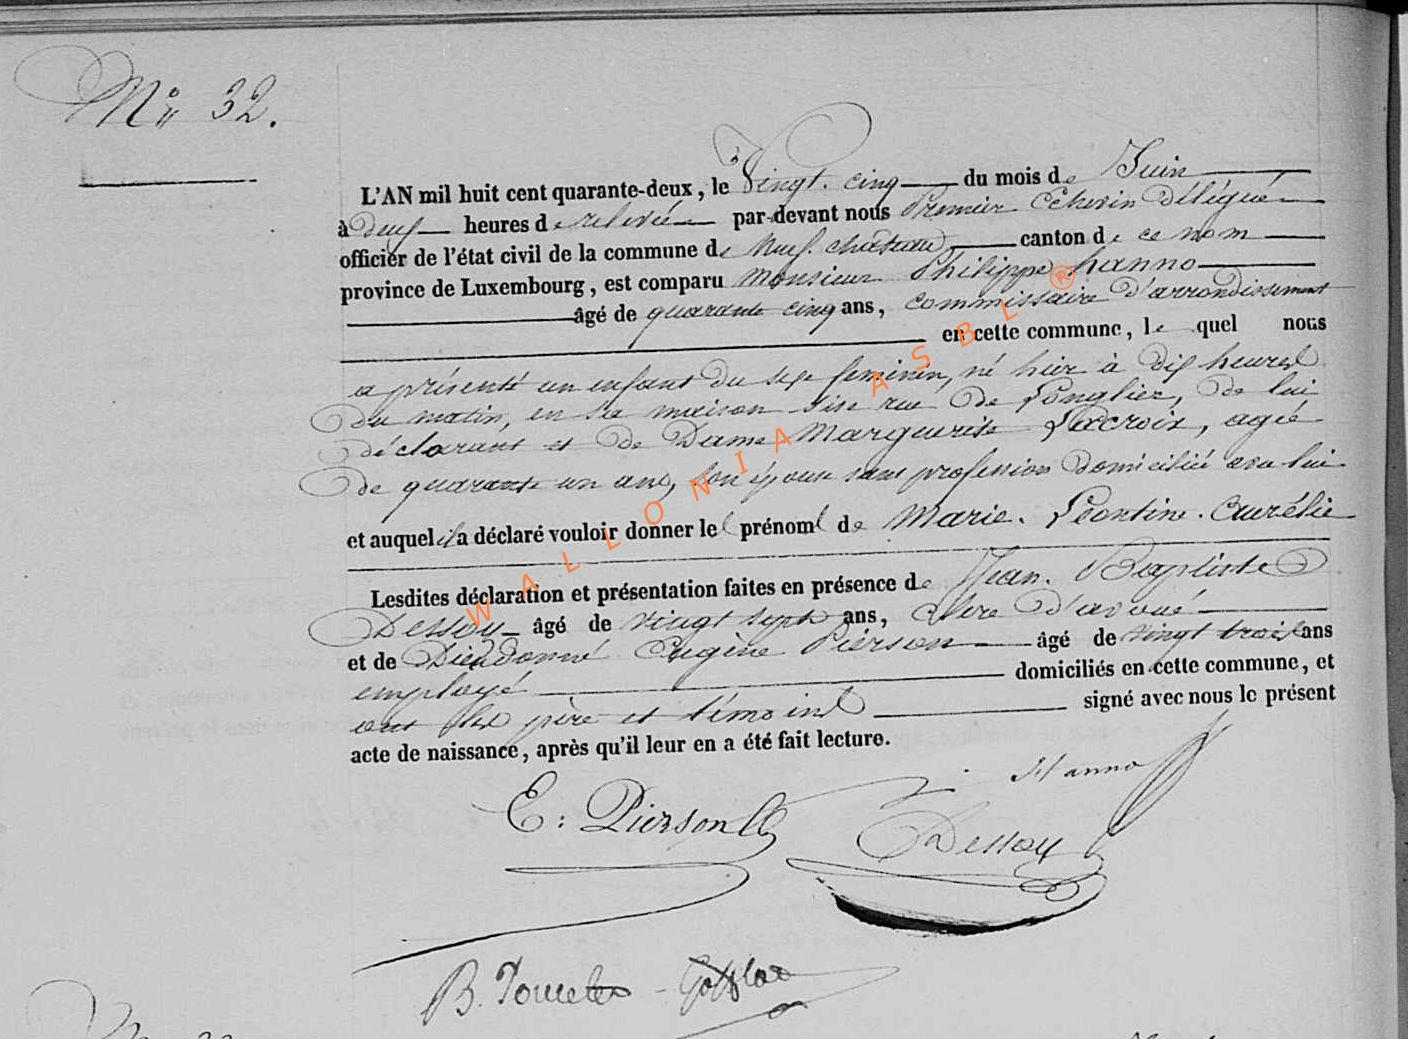 Nº 32.
L'AN mil huit cent quarante-deux, le Vingt-cinq du mois de Juin
à deux heures de relevée par-devant nous Premier Echevin Délégué
officier de l'état civil de la commune de Neufchateau canton de ce nom
province de Luxembourg, est comparu Monsieur Philippe hanno
âgé de quarante cinq ans, commissaire d'arrondissement
en cette commune, le quel nous
a présenté un enfant du sexe feminin, né hier à dix heures
du matin, en sa maison sise rue de Longlier, de lui
déclarant et de Dame Marguerite Lacroix, agée
de quarante un ans, son épouse sans profession domiciliée avec lui
et auquel il a déclaré vouloir donner les prénoms de Marie. Léontine. Aurélie
Lesdites déclaration et présentation faites en présence de Jean. Baptiste
Dessoy âgé de vingt sept ans, clerc d'avoué
et de Dieudonné Eugène Pierson âgé de vingt trois ans
employé domiciliés en cette commune, et
ont les père et témoins signé avec nous le présent
acte de naissance, après qu'il leur en a été fait lecture.
Hanno
E: Pierson
Dessoy
B.
WALLONIA ASBL ®